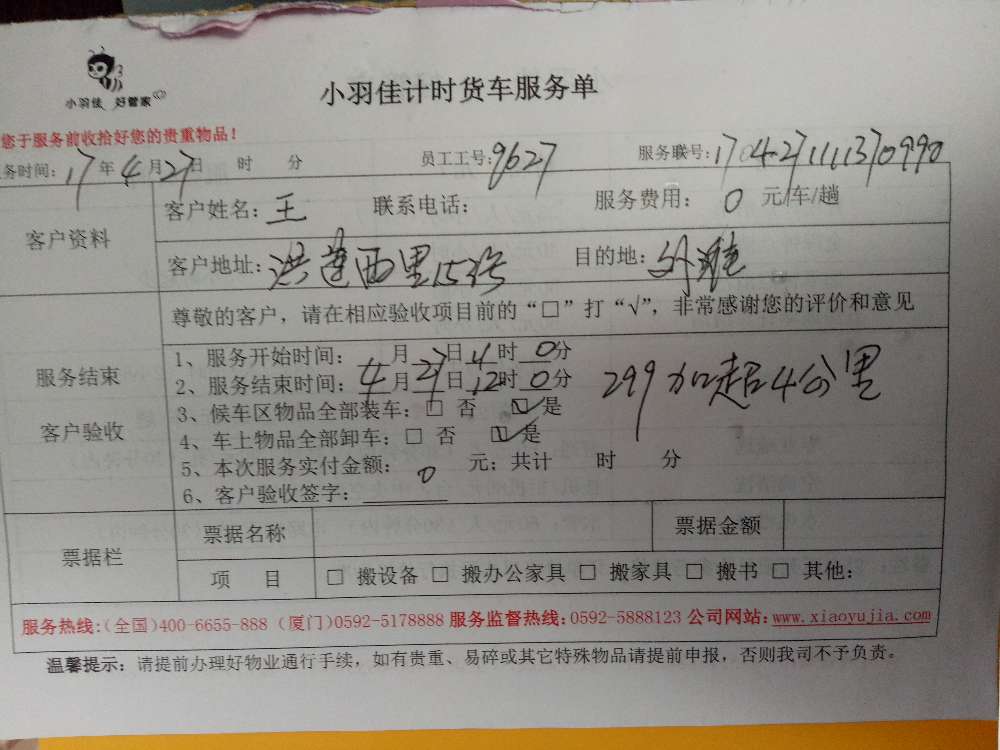 小羽佳 好管家
小羽佳计时货车服务单
您于服务前收拾好您的贵重物品！
务时间：17年4月27日 时 分 员工工号：9627 服务联号：1704271111370990
客户资料
客户姓名：王 联系电话： 服务费用：0 元/车/趟
客户地址：洪莲西里15号 目的地：外滩
服务结束
客户验收
尊敬的客户，请在相应验收项目前的“□”打“√”，非常感谢您的评价和意见
1、服务开始时间： 月27日4时0分
2、服务结束时间：4月27日12时0分
299加超4公里
3、候车区物品全部装车：□ 否 ☑是
4、车上物品全部卸车：□ 否 ☑是
5、本次服务实付金额：0 元；共计 时 分
6、客户验收签字：
票据栏
票据名称 票据金额
项 目 □ 搬设备 □ 搬办公家具 □ 搬家具 □ 搬书 □ 其他：
服务热线：(全国)400-6655-888 (厦门)0592-5178888 服务监督热线：0592-5888123 公司网站：www.xiaoyujia.com
温馨提示：请提前办理好物业通行手续，如有贵重、易碎或其它特殊物品请提前申报，否则我司不予负责。